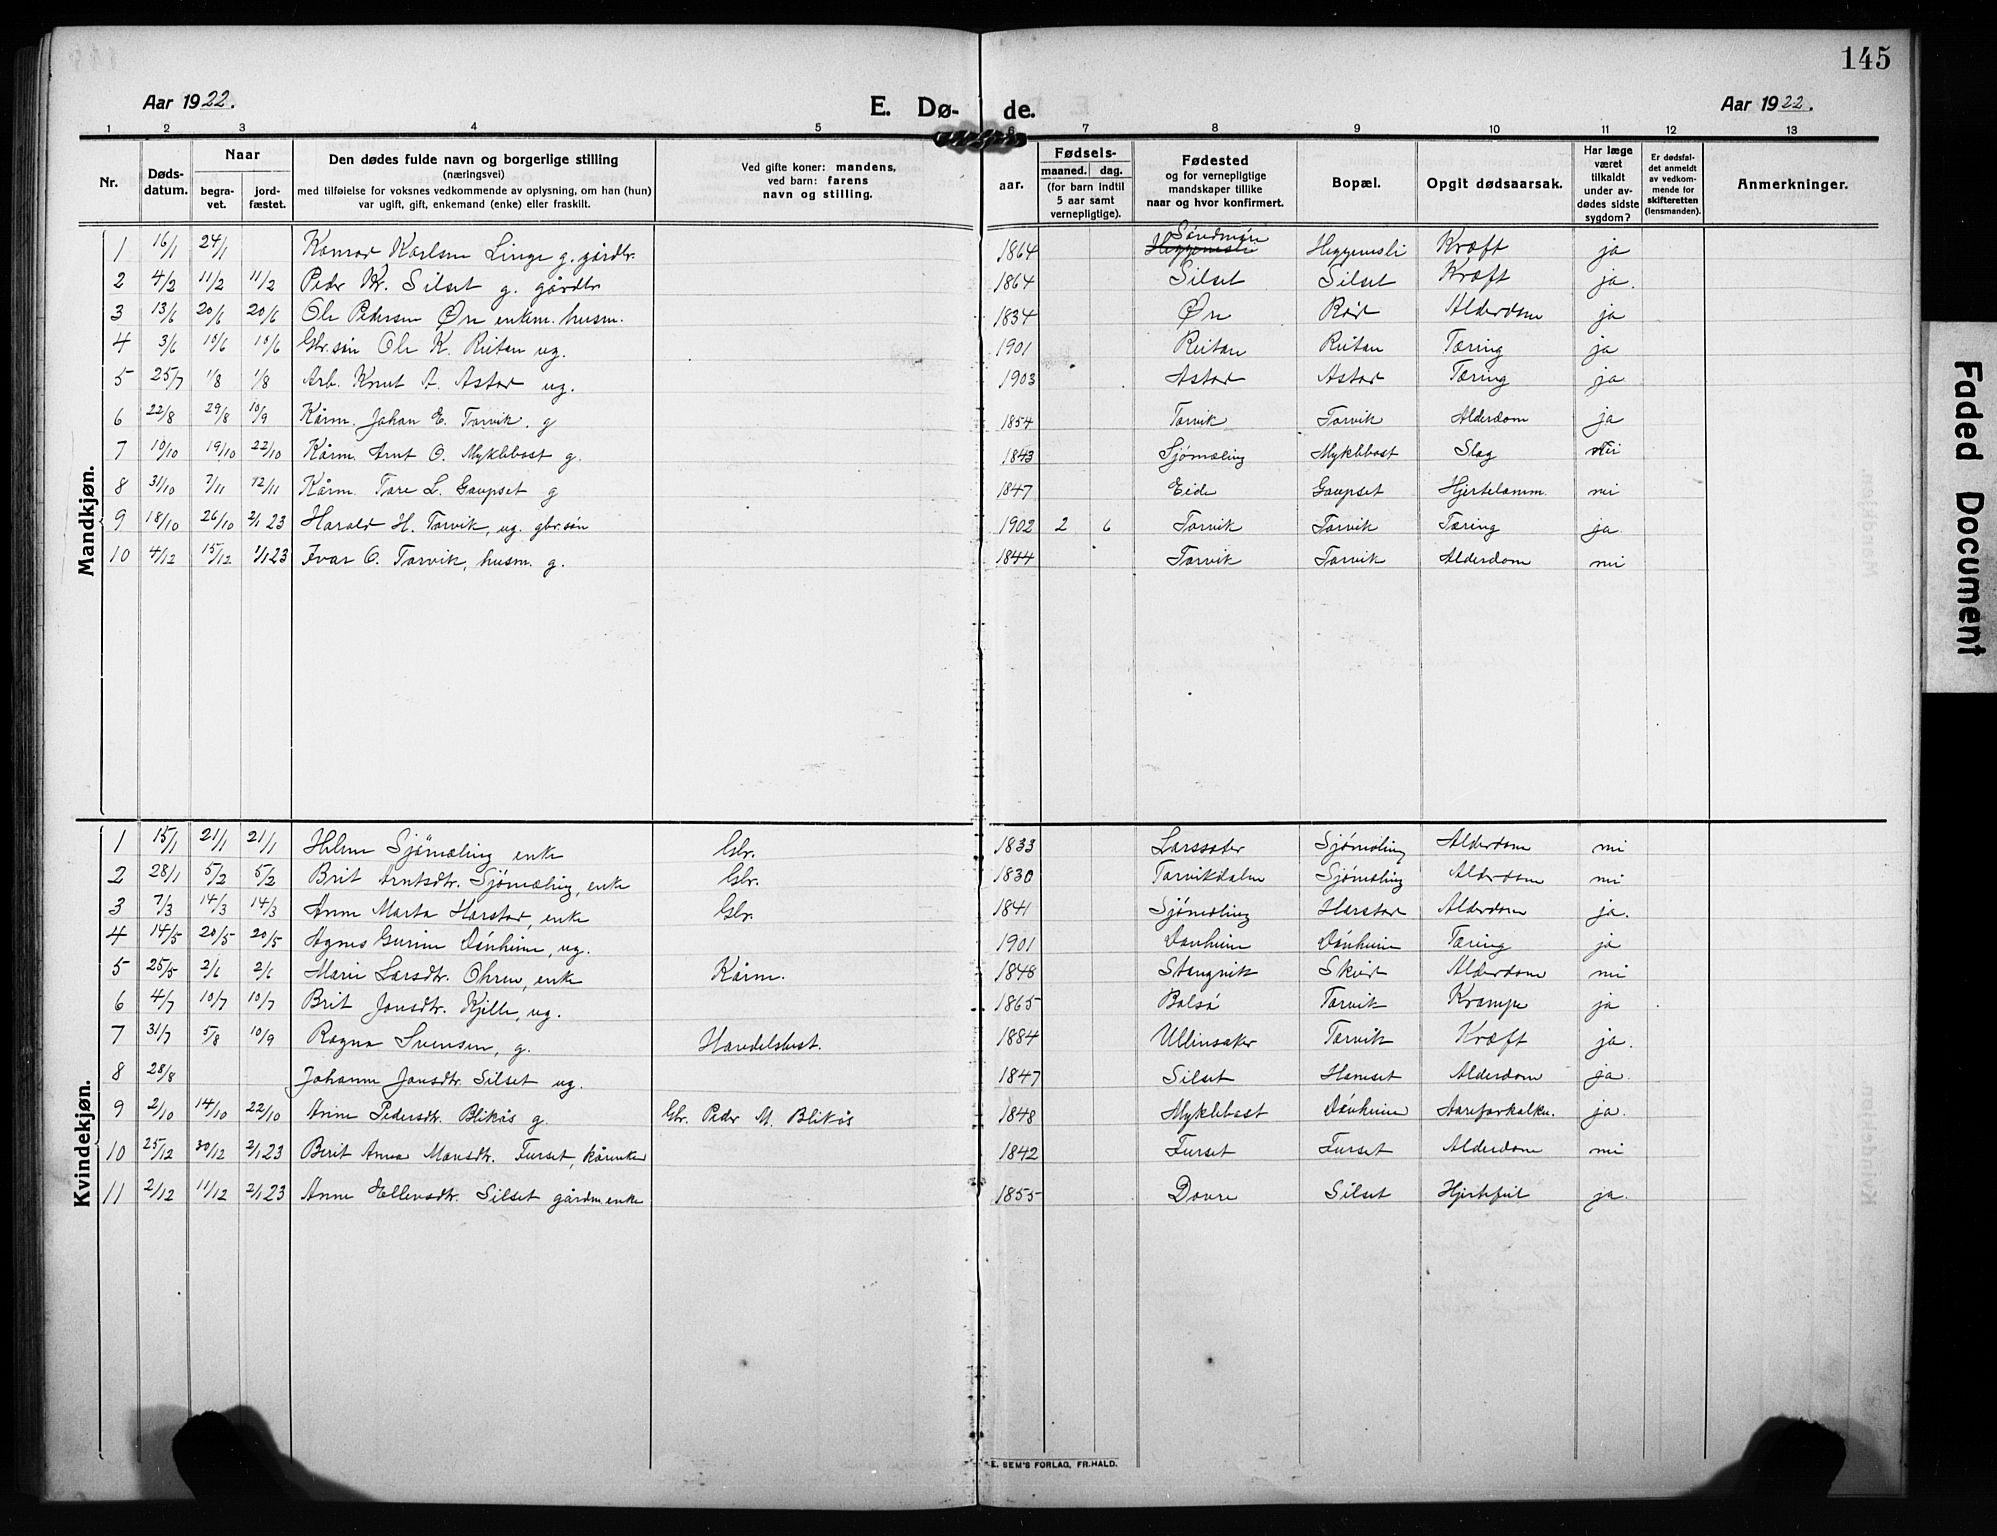 145
Aar 1922. E. Dø- de. Aar 1922.
1 2 3 4 5 6 7 8 9 10 11 12 13
Nr. Døds-datum. Naar begra-vet. jord-fæstet. Den dødes fulde navn og borgerlige stilling (næringsvei) med tilføielse for voksnes vedkommende av oplysning, om han (hun) var ugift, gift, enkemand (enke) eller fraskilt. Ved gifte koner: mandens, ved barn: farens navn og stilling. Fødsels- aar. maaned. dag. (for barn indtil 5 aar samt vernepligtige). Fødested og for vernepligtige mandskaper tillike naar og hvor konfirmert. Bopæl. Opgit dødsaarsak. Har læge været tilkaldt under av-dødes sidste sygdom? Er dødsfal-det anmeldt av vedkom-mende for skifteretten (lensmanden). Anmerkninger.
Mandkjøn.
1 16/1 24/1 Konrad Karlsen Linge g. gårdbr. 1864 Heggemsli Søndmøre Heggemsli Kræft ja
2 4/2 11/2 11/2 Peder Kr. Silset g. gårdbr 1864 Silset Silset Kræft ja.
3 13/6 20/6 20/6 Ole Pedersen Øre enkem. husm. 1834 Øre Rød Alderdom ja
4 3/6 10/6 10/6 Gbr.søn Ole K. Reitan ug. 1901 Reitan Reitan Tæring ja
5 25/7 1/8 1/8 Arb. Knut A. Astad ug. 1903 Astad Astad Tæring ja
6 22/8 29/8 10/9 Kårm. Johan E. Torvik. g 1854 Torvik Torvik Alderdom ja
7 10/10 19/10 22/10 Kårm. Arnt O. Myklebost g. 1843 Sjømæling Myklebost Slag nei
8 31/10 7/11 12/11 Kårm. Tore L. Gaupset g 1847 Eide Gaupset Hjertelamm. nei
9 18/10 26/10 2/1 23 Harald H. Torvik, ug. gbr.søn 1902 2 6 Torvik Torvik Tæring ja
10 4/12 15/12 1/1 23 Ivar O. Torvik, husm. g. 1844 Torvik Torvik Alderdom nei
Kvindekjøn.
1 15/1 21/1 21/1 Helene Sjømæling enke Gbr. 1833 Larssæter Sjømæling Alderdom nei
2 28/1 5/2 5/2 Brit Arntsdtr. Sjømæling, enke Gbr. 1830 Torvikdalen Sjømæling Alderdom nei
3 7/3 14/3 14/3 Anne Marta Harstad, enke Gbr. 1841 Sjømæling Harstad Alderdom ja.
4 14/5 20/5 20/5 Agnes Gurine Dønheim, ug. 1901 Dønheim Dønheim Tæring ja
5 25/5 2/6 2/6 Marie Larsdtr. Ohren, enke Kårm. 1848 Stangvik Skeid Alderdom nei
6 4/7 10/7 10/7 Brit Jonsdtr. Kjelle, ug. 1865 Bolsø Torvik Krampe ja
7 31/7 5/8 10/9 Ragna Svensen, g. Handelsbest. 1884 Ullensaker Torvik Kræft ja.
8 28/8 Johanne Jonsdtr. Silset ug. 1847 Silset Hamset Alderdom ja.
9 2/10 14/10 22/10 Anne Pedersdtr. Blikås g. Gbr. Peder M. Blikås 1848 Myklebost Dønheim Aareforkalkn. ja.
10 25/12 30/12 2/1 23 Berit Anna Monsdtr. Furset, kårenke 1842 Furset Furset Alderdom nei
11 2/12 11/12 2/1 23 Anne Ellensdtr. Silset gårdm.enke 1855 Dovre Silset Hjertefeil ja.
E. SEM'S FORLAG, FR.HALD.
Faded Document